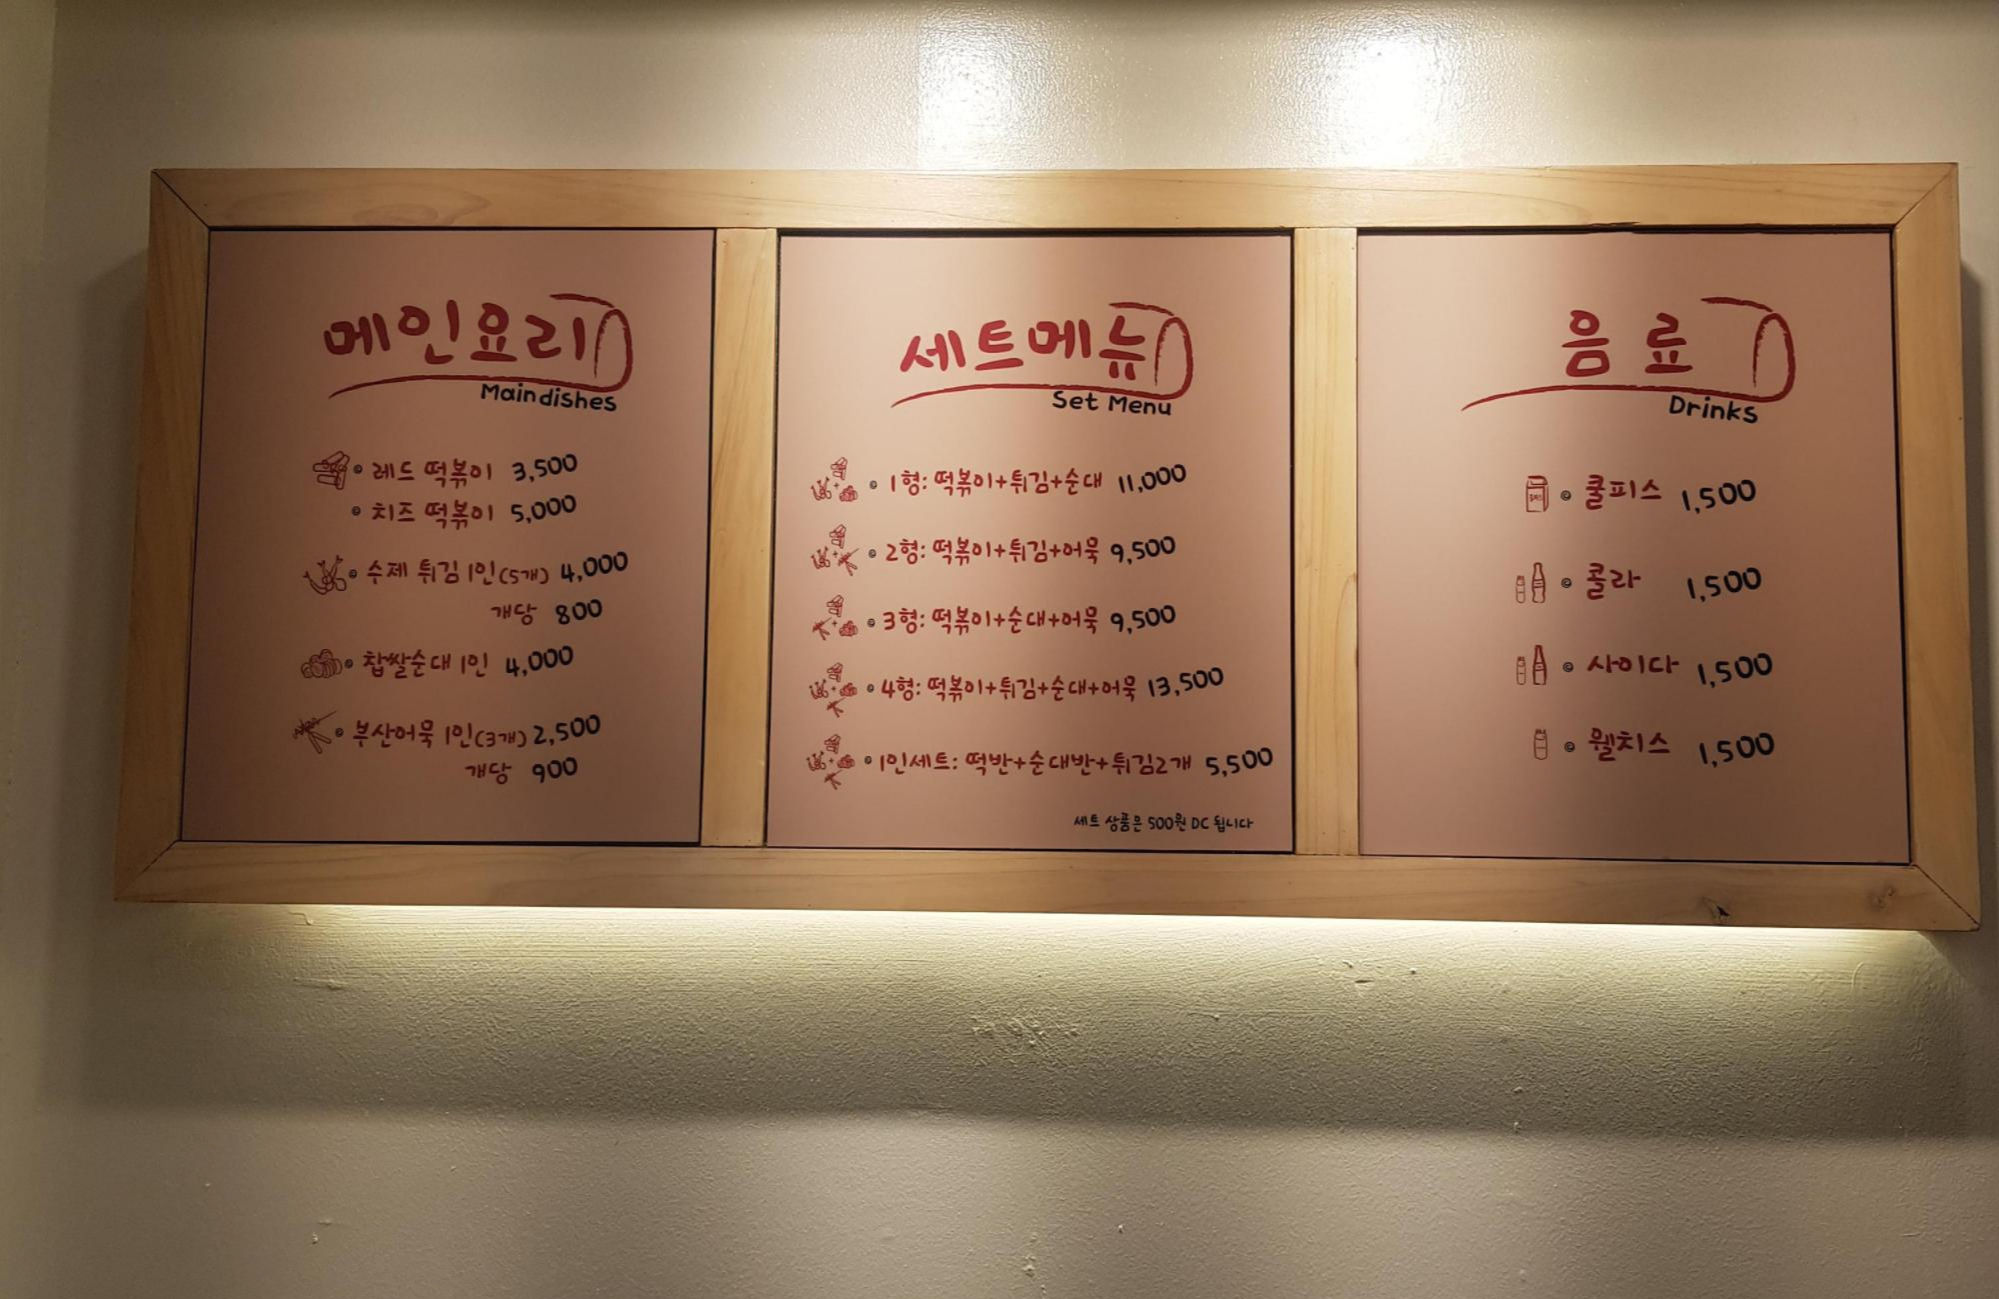 메인요리
Maindishes
레드 떡볶이 3,500
치즈 떡볶이 5,000
수제 튀김 1인(5개) 4,000
개당 800
찹쌀순대 1인 4,000
부산어묵 1인(3개) 2,500
개당 900
세트메뉴
Set Menu
1형: 떡볶이+튀김+순대 11,000
2형: 떡볶이+튀김+어묵 9,500
3형: 떡볶이+순대+어묵 9,500
4형: 떡볶이+튀김+순대+어묵 13,500
1인세트: 떡반+순대반+튀김2개 5,500
세트 상품은 500원 DC 됩니다
음료
Drinks
쿨피스 1,500
콜라 1,500
사이다 1,500
웰치스 1,500